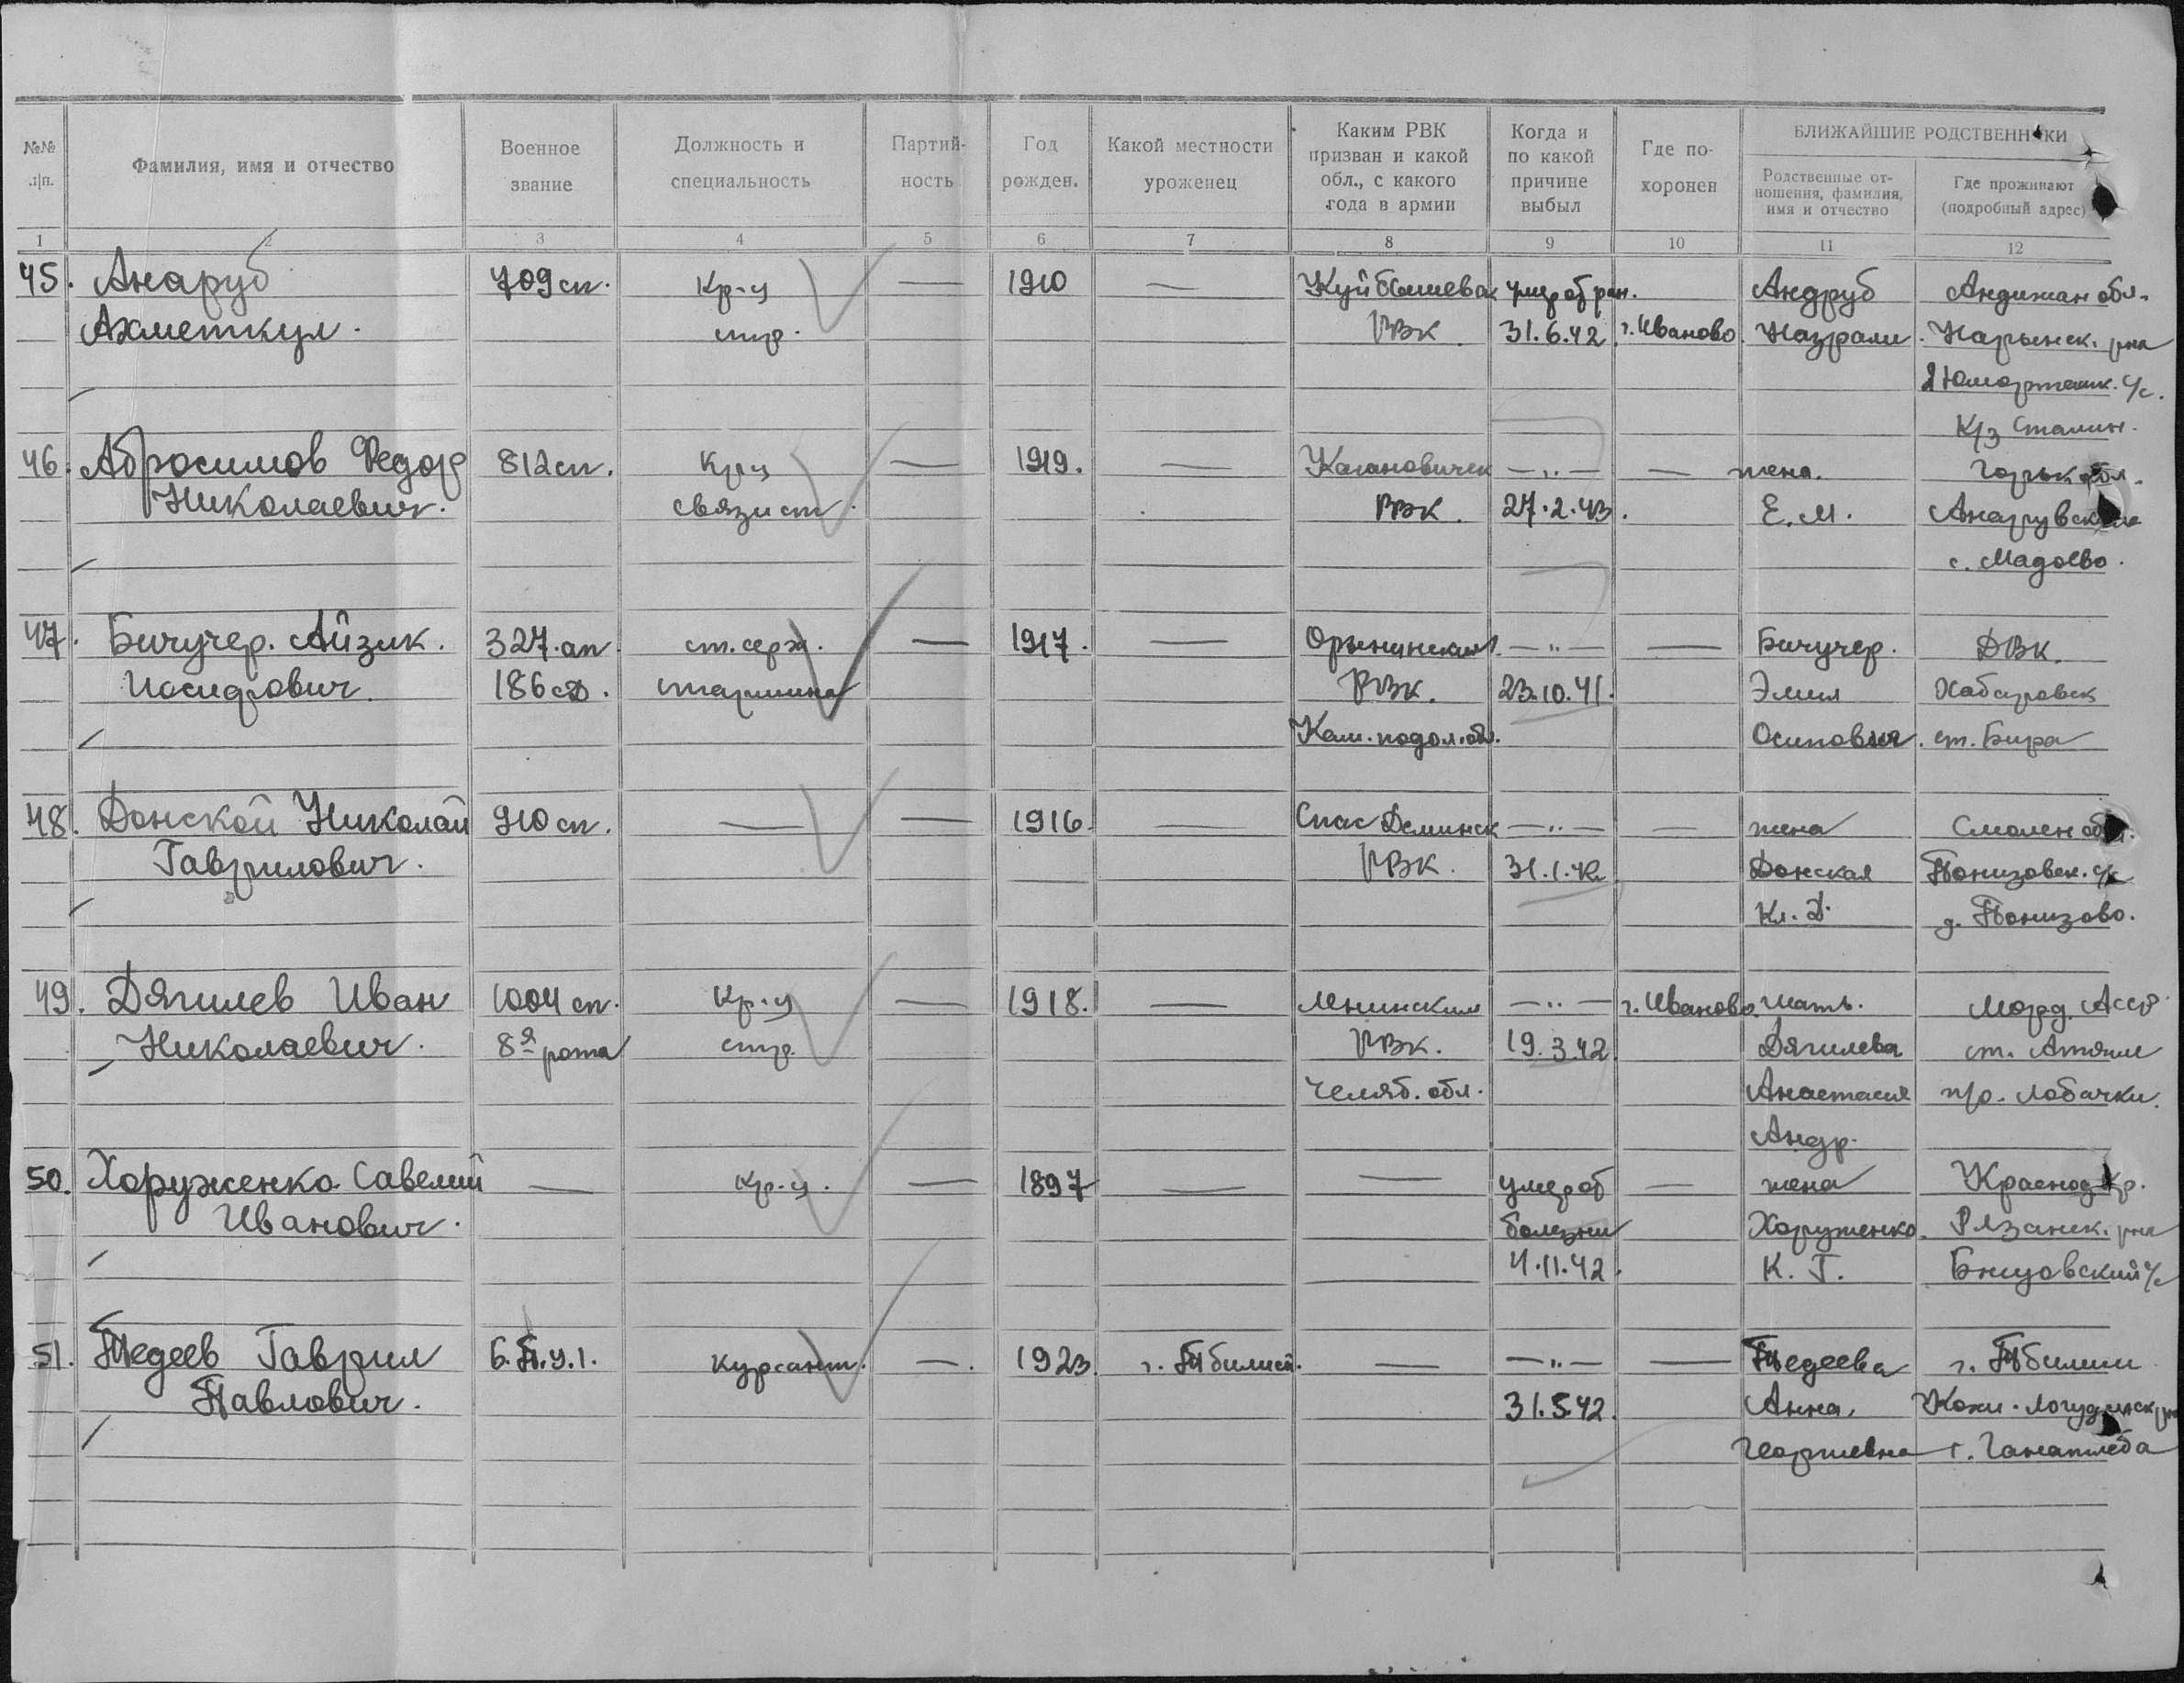 №№ п/п.
Фамилия, имя и отчество
Военное звание
Должность и специальность
Партий-ность
Год рожден.
Какой местности уроженец
Каким РВК призван и какой обл., с какого года в армии
Когда и по какой причине выбыл
Где по-хоронен
БЛИЖАЙШИЕ РОДСТВЕННИКИ
Родственные от-ношения, фамилия, имя и отчество
Где проживают (подробный адрес)
1 2 3 4 5 6 7 8 9 10 11 12
45. Анаруб 709 сп. Кр-ц — 1910 — Куйбышевск умер от ран. Андруб Андижан обл.
Ахметкул. стр. РВК 31.6.42 г. Иваново. Назрали. Нарынск. рна
с/с.
К/з Сталин.
46. Абросимов Федор 812 сп. Кр-ц — 1919. — Кагановичск —„— — жена. Горьк обл.
Николаевич. связист. РВК. 27.2.43. Е. М.
с. Мадаево.
47. Бичучер. Айзик. 327. ап. ст. серж. — 1917. — Орынинский —„— — Бичучер. ДВК.
Иосифович. 186 сд. старшина РВК. 23.10.41. Эмия Хабаровск
Кам. подол. обл. Осипович. ст. Бира
48. Донской Николай 910 сп. — — 1916. — Спас Деминск —„— — жена Смолен обл.
Гаврилович. РВК. 31.1.42 Донская Понизовск. с/с
Кл. Д. д. Понизово.
49. Дягилев Иван 1004 сп. Кр-ц — 1918. — Мининским —„— г. Иваново. мать. Морд. Асср
Николаевич. 8я рота стр. РВК. 19.3.42 Дягилева ст. Атяши
Челяб. обл. Анастасия п/о. Лобачки.
Андр.
50. Хоруженко Савелий — Кр-ц. — 1897 — — умер от — жена Краснод кр.
Иванович. болезни Хоруженко. Рязанск. рна
4.11.42. К. Г. с/с
51. Тедеев Гаврил Б.П.У.1. курсант. —. 1923. г. Тбилиси. — —„— — Тедеева г. Тбилиси
Павлович. 31.5.42. Анна.
Георгиевна